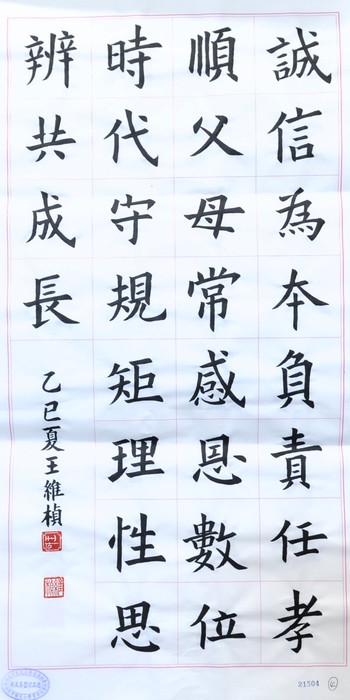 誠信為本負責任孝
順父母常感恩數位
時代守規矩理性思
辨共成長
乙巳夏王維楨
21504